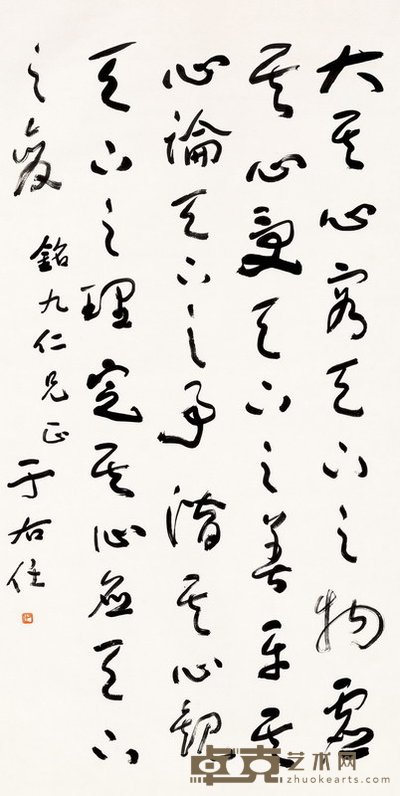 大其心容天下之物虛
其心受天下之善平其
心論天下之事潛其心觀
天下之理定其心應天下
之變
銘九仁兄正
于右任
卓克艺术网
www.zhuokearts.com